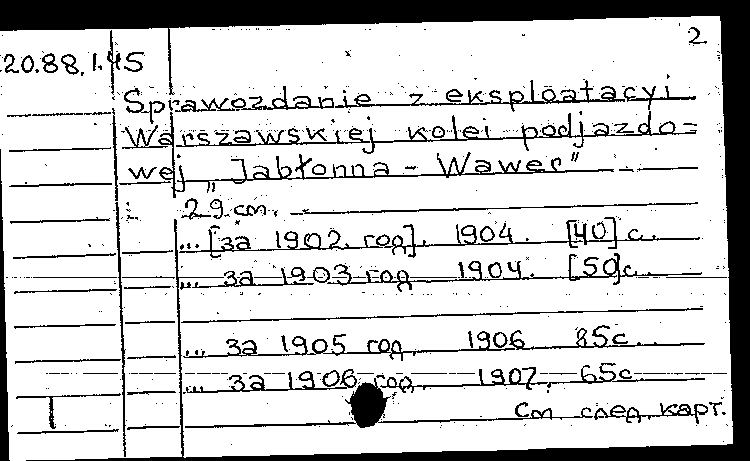 2
20.88.1.45
Sprawozdanie z eksploatacyi
Warszawskiej kolei podjazdo=
wej „Jabłonna - Wawer"
29 cm.
... [за 1902 год]. 1904. [40] с.
... за 1903 год 1904. [50]с.
... за 1905 год. 1906 85с.
... за 1906 год. 1907. 65с
См. след. карт.
1